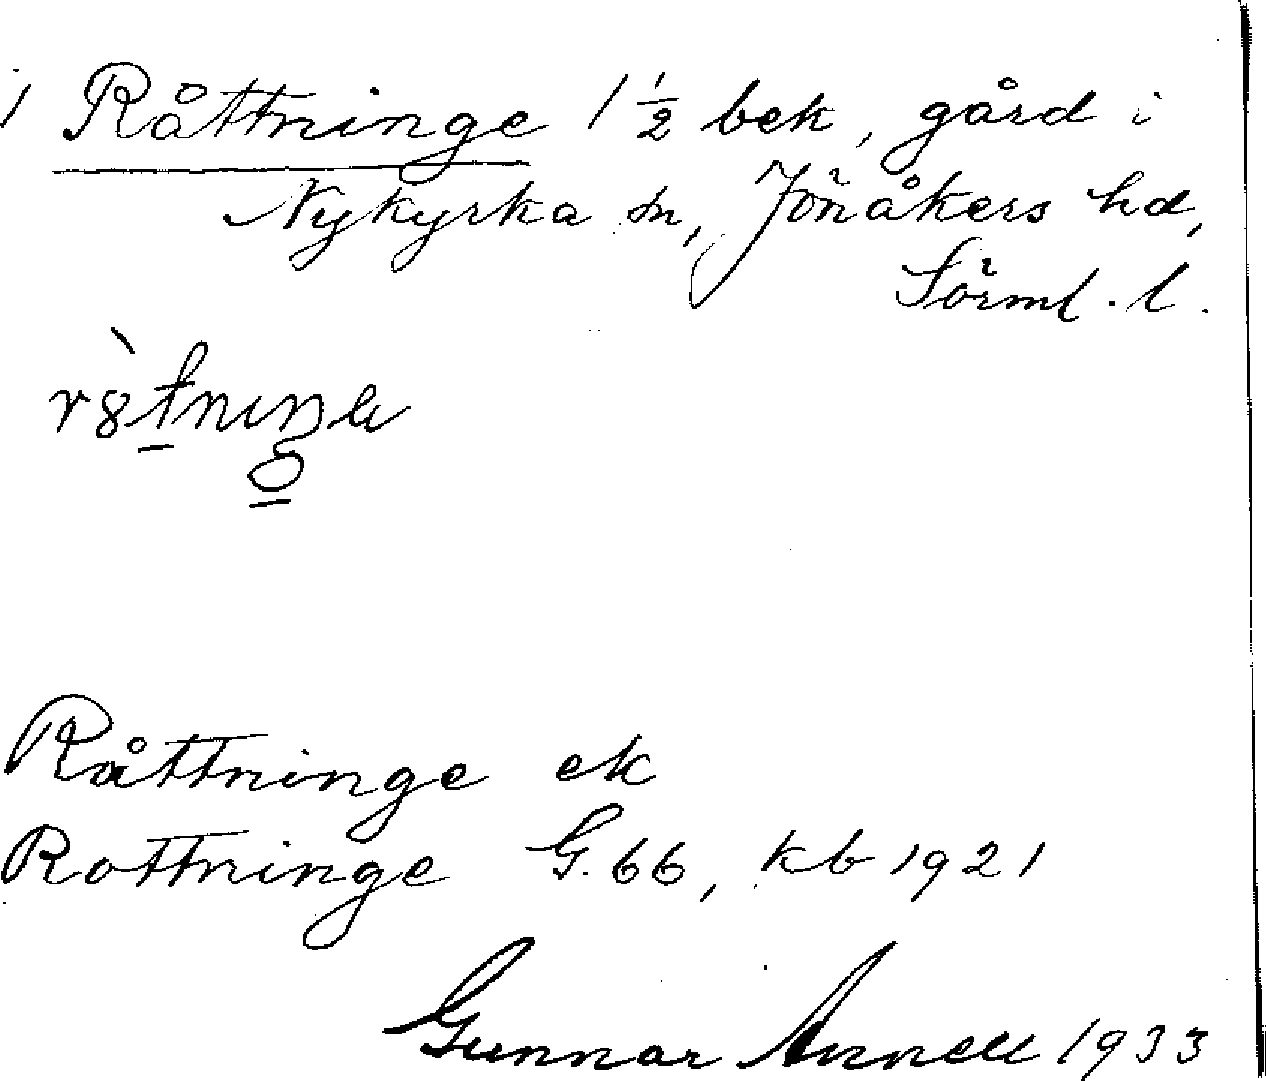 1 Råttninge 1 ½ bek, gård i
Nykyrka sn, Jönåkers hd,
Sörml. l.
Råttninge ek
Rottninge G. 66, kb 1921
Gunnar Annell 1933